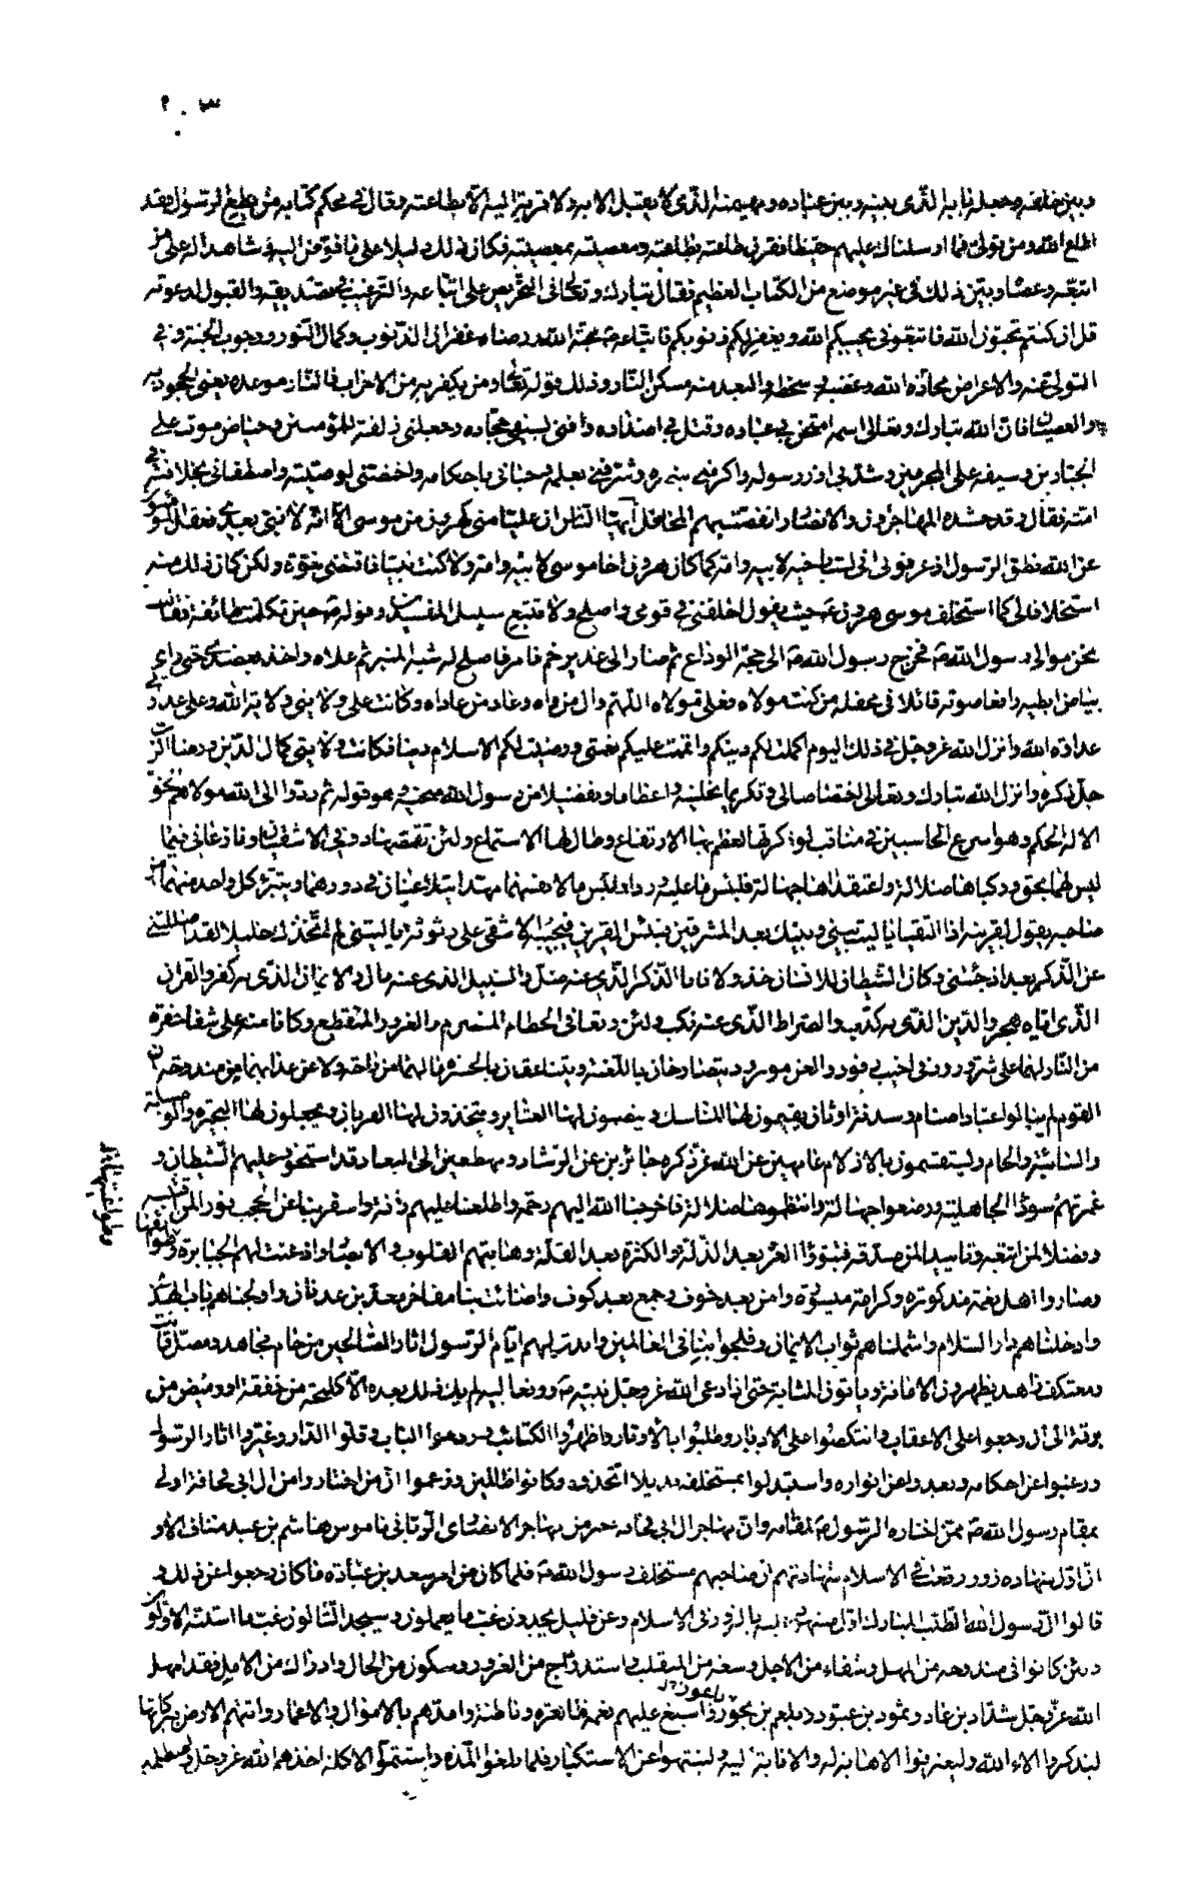 ٢٠٣
وبين خلقه وجعله بابه الذي بينه وبين عباده ومهيمنه الذي لا يقبل الا به ولا قربة اليه الا بطاعته وقال في محكم كتابه من يطع الرسول فقد
اطاع الله ومن تولى فما ارسلناك عليهم حفيظا فقرن طاعته بطاعته ومعصيته بمعصيته فكان ذلك دليلا على ما فوض اليه وشاهدا له على من
اتبعه وعصاه وبين ذلك في غير موضع من الكتاب العظيم فقال تبارك وتعالى في التحريض على اتباعه والترغيب في تصديقه والقبول لدعوته
قل ان كنتم تحبون الله فاتبعوني يحببكم الله ويغفر لكم ذنوبكم فاتباعه محبة الله ورضاه غفران الذنوب وكمال النور ووجوب الجنة وفي
التولي عنه والاعراض محادة الله وغضبه وسخطه والبعد منه مسكن النار وذلك قوله تعالى ومن يكفر به من الاحزاب فالنار موعده يعني الجحود به
والعصيان فان الله تبارك وتعالى اسمه امتحن بي عباده وقتل بي اضداده وافنى بسيفي جحاده وجعلني زلفة للمؤمنين وحياض موت على
الجبارين وسيفه على المجرمين وشد بي ازر رسوله واكرمني بنصره وشرفني بعلمه وحباني باحكامه واختصني لوصيته واصطفاني بخلافته في
امته فقال وقد حشده المهاجرون والانصار وانغصت بهم المحافل ايها الناس ان عليا مني كهرون من موسى الا انه لا نبي بعدي فعقل المؤمنون
عن الله نطق الرسول اذ عرفوني اني لست باخيه لابيه وامه كما كان هرون اخا موسى لابيه وامه ولا كنت نبيا فاقتضى نبوة ولكن كان ذلك منه
استخلافا لي كما استخلف موسى هرون حيث يقول اخلفني في قومي واصلح ولا تتبع سبيل المفسدين وقوله حين تكلمت طائفة فقالت
نحن موالي رسول الله فخرج رسول الله الى حجة الوداع ثم صار الى غدير خم فامر فاصلح له شبه المنبر ثم علاه واخذ بعضدي حتى رأي
بياض ابطيه رافعا صوته قائلا في محفله من كنت مولاه فعلي مولاه اللهم وال من والاه وعاد من عاداه وكانت على ولايتي ولاية الله وعلى عداوتي
عداوة الله وانزل الله عز وجل في ذلك اليوم اكملت لكم دينكم واتممت عليكم نعمتي ورضيت لكم الاسلام دينا فكانت ولايتي كمال الدين ورضا الرب
جل ذكره وانزل الله تبارك وتعالى اختصاصا لي وتكريما نحلنيه واعظاما وتفضيلا من رسول الله منحنيه وهو قوله ثم ردوا الى الله مولاهم الحق
الا له الحكم وهو اسرع الحاسبين في مناقب لو ذكرتها لعظم بها الارتفاع وطال لها الاستماع ولئن تقمصها دوني الاشقيان ونازعاني فيما
ليس لهما بحق وركباها ضلالة واعتقداها جهالة فلبئس ما عليه وردا ولبئس ما لانفسهما مهدا يتلاعنان في دورهما ويتبرء كل واحد منهما من
صاحبه يقول لقرينه اذا التقيا يا ليت بيني وبينك بعد المشرقين فبئس القرين فيجيبه الاشقى على رثوثة يا ليتني لم اتخذك خليلا لقد اضللتني
عن الذكر بعد اذ جائني وكان الشيطان للانسان خذولا فانا الذكر الذي عنه ضل والسبيل الذي عنه مال والايمان الذي به كفر والقران
الذي اياه هجر والدين الذي به كذب والصراط الذي عنه نكب ولئن رتعا في الحطام المنصرم والغرور المنقطع وكانا منه على شفا حفرة
من النار لهما على شر ورود في اخيب وفود والعن مورود يتصارخان باللعنة ويتناعقان بالحسرة ما لهما من راحة ولا عن عذابهما من مندوحة ان
القوم لم يزالوا عباد اصنام وسدنة اوثان يقيمون لها المناسك وينصبون لها العتاير ويتخذون لها القربان ويجعلون لها البحيرة والوصيلة
والسائبة والحام ويستقسمون بالازلام عامهين عن الله عز ذكره حائرين عن الرشاد ومهطعين الى البعاد قد استحوذ عليهم الشيطان و
غمرتهم سوداء الجاهلية ورضعوا جهالة وانتظموها ضلالة فاخرجنا الله اليهم رحمة واطلعنا عليهم رأفة واسفر بنا عن الحجب نورا لمن اقتبسه
وفضلا لمن اتبعه وتاييدا لمن صدقه فتبوؤا العز بعد الذلة والكثرة بعد القلة وهابتهم القلوب والابصار واذعنت لهم الجبابرة وطوائفها
وطواغيتها
وصاروا اهل نعمة مذكورة وكرامة ميسورة وامن بعد خوف وجمع بعد كوف واضائت بنا مفاخر معد بن عدنان واولجناهم باب الهدى
وادخلناهم دار السلام واشملناهم ثوب الايمان وفلجوا بنا في العالمين وابدت لهم ايام الرسول اثار الصالحين من حام مجاهد ومصل قانت
ومعتكف زاهد يظهرون الامانة وياتون المثابة حتى اذا دعى الله عز وجل نبيه ورفعه اليه لم يك ذلك بعده الا كلمحة من خفقة او وميض من
برقة الى ان رجعوا على الاعقاب وانتكصوا على الادبار وطلبوا بالاوتار واظهروا الكتائب وردموا الباب وفلوا الدار وغيروا اثار الرسول
ورغبوا عن احكامه وبعدوا عن انواره واستبدلوا بمستخلفه بديلا اتخذوه وكانوا ظالمين وزعموا ان من اختاروا من ال ابي قحافة اولى
بمقام رسول الله ممن اختاره الرسول لمقامه وان مهاجر ال ابي قحافة خير من مهاجر الانصاري الرباني ناموس هاشم بن عبد مناف الا و
ان اول شهادة زور وقعت في الاسلام شهادتهم ان صاحبهم مستخلف رسول الله فلما كان من امر سعد بن عبادة ما كان رجعوا عن ذلك و
قالوا ان رسول الله الطيب المبارك اول مشهود عليه بالزور في الاسلام وعن قليل يجدون غب ما يعملون وسيجد التالون غب ما اسسه الاولون
ولئن كانوا في مندوحة من المهل وشفاء من الاجل وسعة من المنقلب واستدراج من الغرور وسكون من الحال وادراك من الامل فقد امهل
الله عز وجل شداد بن عاد وثمود بن عبود وبلعم بن باعور واسبغ عليهم نعمه ظاهرة وباطنة وامدهم بالاموال والاعمار واتتهم الارض ببركاتها
ليذكروا الاء الله وليعرفوا الاهابة له والانابة اليه ولينتهوا عن الاستكبار فلما بلغوا المدة واستتموا الاكلة اخذهم الله عز وجل واصطلمهم